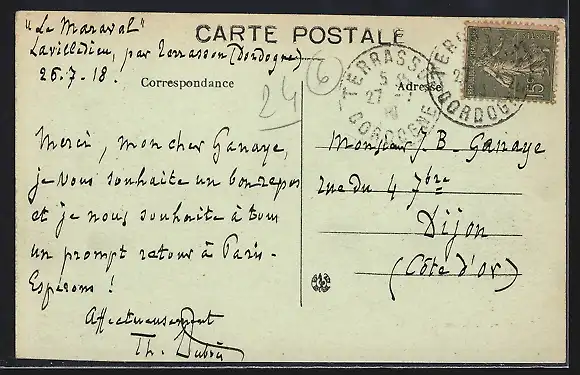 "Le Maraval"
Lavilledieu, par Terrasson (Dordogne)
26.7.18.
CARTE POSTALE
Correspondance
Adresse
24
6
TERRASSON
27
DORDOGNE
DORDOGNE
15
Merci, mon cher Ganaye,
je vous souhaite un bon repos
et je nous souhaite à tous
un prompt retour à Paris -
Espérons !
Affectueusement
Th. Dubois
Monsieur J. B. Ganaye
rue du 4 7bre
Dijon
(Côte d'or)